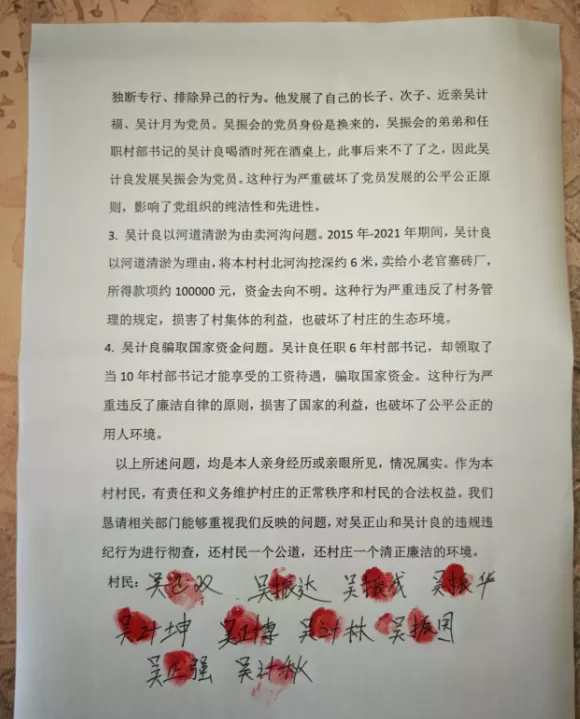 独断专行、排除异己的行为。他发展了自己的长子、次子、近亲吴计
福、吴计月为党员。吴振会的党员身份是换来的，吴振会的弟弟和任
职村部书记的吴计良喝酒时死在酒桌上，此事后来不了了之，因此吴
计良发展吴振会为党员。这种行为严重破坏了党员发展的公平公正原
则，影响了党组织的纯洁性和先进性。
3. 吴计良以河道清淤为由卖河沟问题。2015 年-2021 年期间，吴计良
以河道清淤为理由，将本村村北河沟挖深约 6 米，卖给小老官寨砖厂，
所得款项约 100000 元，资金去向不明。这种行为严重违反了村务管
理的规定，损害了村集体的利益，也破坏了村庄的生态环境。
4. 吴计良骗取国家资金问题。吴计良任职 6 年村部书记，却领取了
当 10 年村部书记才能享受的工资待遇，骗取国家资金。这种行为严
重违反了廉洁自律的原则，损害了国家的利益，也破坏了公平公正的
用人环境。
以上所述问题，均是本人亲身经历或亲眼所见，情况属实。作为本
村村民，有责任和义务维护村庄的正常秩序和村民的合法权益。我们
恳请相关部门能够重视我们反映的问题，对吴正山和吴计良的违规违
纪行为进行彻查，还村民一个公道，还村庄一个清正廉洁的环境。
村民：吴正双 吴振达 吴振成 吴振华
吴计坤 吴正博 吴计林 吴振
吴正强 吴计秋